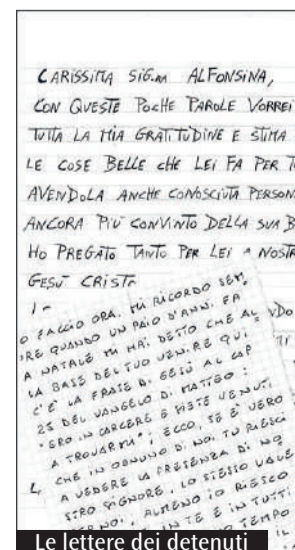 CARISSIMA SIG.RA ALFONSINA,
CON QUESTE POCHE PAROLE VORREI
TUTTA LA MIA GRATITUDINE E STIMA
LE COSE BELLE CHE LEI FA PER T
AVENDOLA ANCHE CONOSCIUTA PERSON
ANCORA PIÙ CONVINTO DELLA SUA B
HO PREGATO TANTO PER LEI A NOSTR
GESÙ CRISTO
O FACCIO ORA. MI RICORDO SEM
PRE QUANDO UN PAIO D'ANNI FA
A NATALE MI HAI DETTO CHE AL
LA BASE DEL TUO VENIRE QUI
C'È LA FRASE DI GESÙ AL CAP
25 DEL VANGELO DI MATTEO:
"ERO IN CARCERE E SIETE VENUTI
A TROVARMI"; ECCO, SE È VERO
CHE IN OGNUNO DI NOI TU RIESCI
A VEDERE LA PRESENZA DI NO
STRO SIGNORE, LO STESSO VALE
PER NOI, ALMENO IO RIESCO
IN TE E IN TUTTI
TEMPO
Le lettere dei detenuti